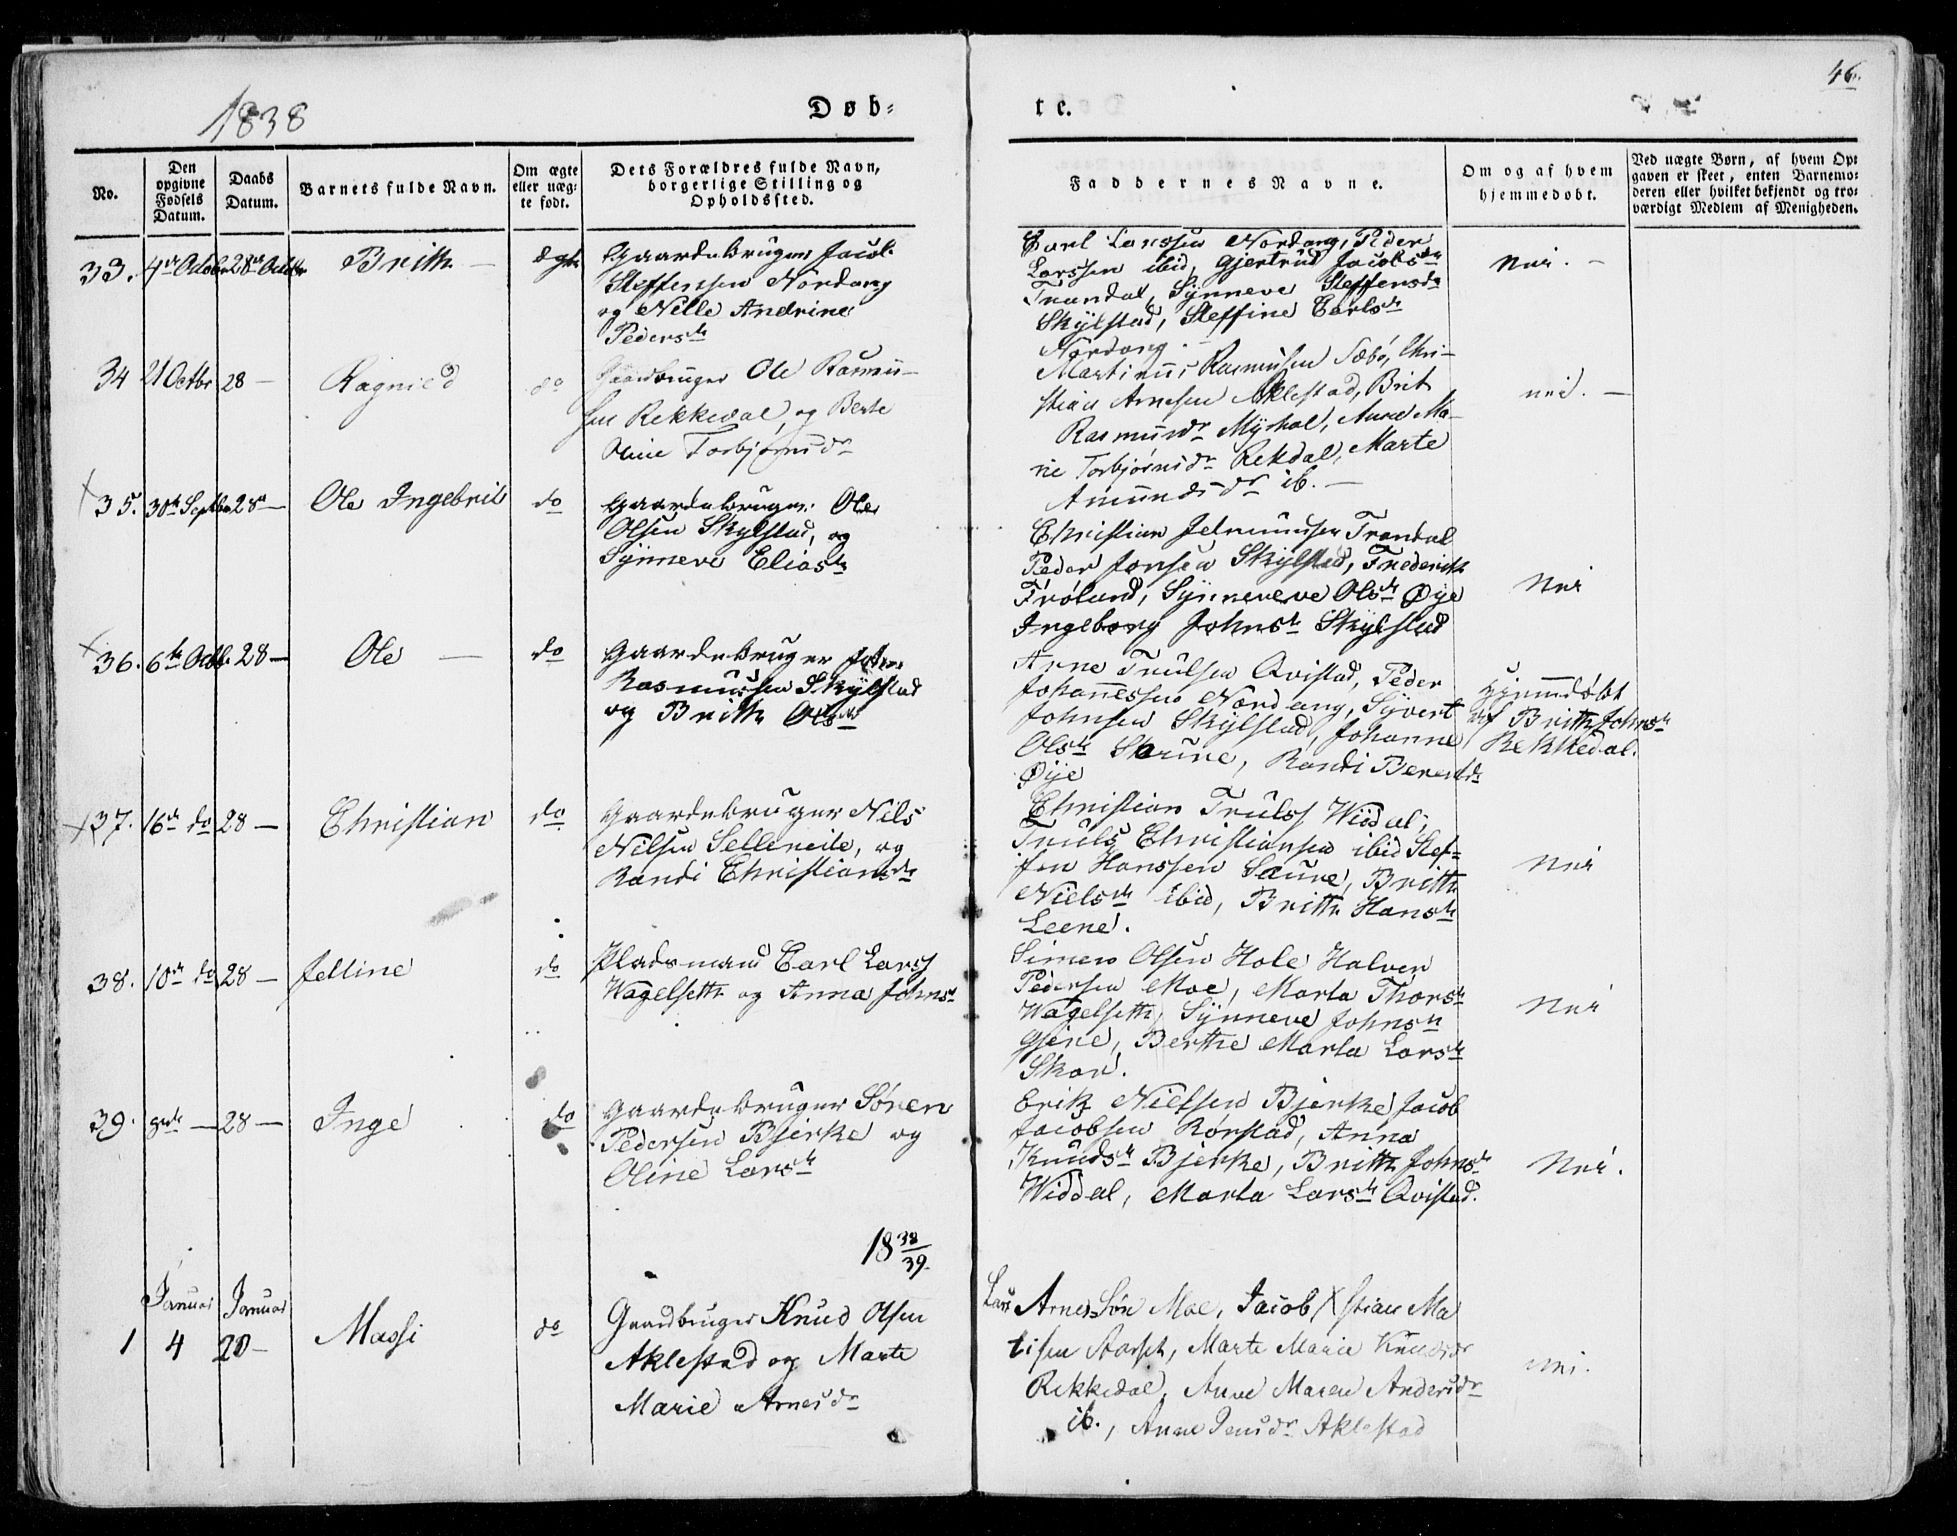 46.
1838
Døb-
te.
No.
Den opgivne Fødsels Datum.
Daabs Datum.
Barnets fulde Navn.
Om ægte eller uæg-te født.
Dets Forældres fulde Navn, borgerlige Stilling og Opholdssted.
Faddernes Navne.
Om og af hvem hjemmedøbt.
Ved uægte Børn, af hvem Op-gaven er skeet, enten Barnemo-deren eller hvilket bekjendt og tro-værdigt Medlem af Menigheden.
33. 4de Octobr 28de Octbr Brith — ægte
Gaardebruger Jacob
Steffensen Nordang
og Nille Andrine
Pedersdr
Carl Larssen Nordang, Peder
Larssen ibid, Gjertrud Jacobsdr
Trandal, Synneve Steffensdr
Skylstad, Steffine Carlsdr
Nordang.
Nei. —
34 21 Octbr 28 — Ragnild do
Gaardbruger Ole Rasmu-
sen Rekkedal, og Berte
Oline Torbjørnsdr
Martinus Rasmusen Sæbø, Chri-
stian Arnesen Aklestad, Brit
Rasmusdr Myhal, Anne Ma-
rie Torbjørnsdr Rekdal, Marte
Amundsdr ib. —
nei. —
35. 30te Septbr 28de — Ole Ingebrit do
Gaardebruger Ole
Olsen Skylstad, og
Synneve Eliasdr
Christian Jetmundsen Trandal
Peder Jonsen Skylstad, Frederik
Frøland, Synneve Olsdr Øye
Ingeborg Johnsdr Skylstad
Nei
36. 6te Octbr 28 — Ole — do
Gaardebruger John
Rasmussen Skylstad
og Brith Olsdr
Arne Trulsen Qvistad, Peder
Johannessen Nordang, Syvert
Johnsen Skylstad, Johanne
Olsdr Skrune, Randi Berentdr
Øye
Hjemmdøbt
af Brith Johnsdr
Rekkedal.
37. 16de do 28 — Christian do
Gaardebruger Nils
Nilsen Selleneite, og
Randi Christiansdr
Christian Truls Widdal,
Truls Christiansen ibid Stef-
fen Hanssen Saure, Brith
Nielsdr ibid, Brith Hansdr
Leene.
Nei
38. 10de do 28 — Jelline do
Pladsmand Carl Lars
Wagelseth og Anna Johnsdr
Simen Olsen Hole Halver
Pedersen Moe, Marta Thorsdr
Wagelseth, Synneve Johnsdr
Gjene, Berthe Marta Larsdr
Skar.
Nei
39. — 28 — Inge do
Gaardebruger Søren
Pedersen Bjerke og
Oline Larsdr
Erik Nielsen Bjerke Jacob
Jacobsen Rørstad, Anna
Knudsdr Bjerke, Brith Johnsdr
Widdal, Marta Larsdr Qvistad.
Nei.
18 38/39.
Januar Januar
1 4 20 — Massi do
Gaardbruger Knud Olsen
Aklestad og Marte
Marie Arnesdr
Lars Arnes Søn Moe, Jacob Xstian Ma
tisen Aarset, Marte Marie Knudsdr
Rekkedal, Anne Maren Andersdr
ib., Anne Jensdr Aklestad
nei.